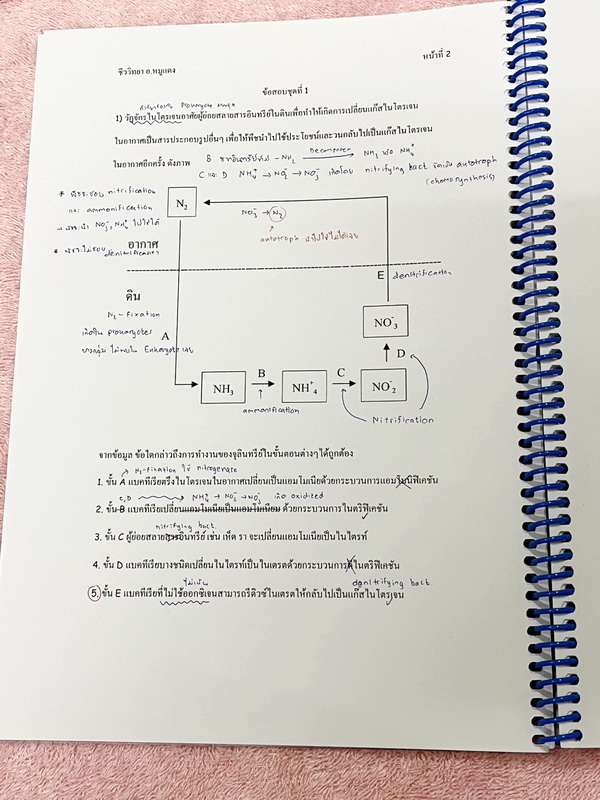 หน้าที่ 2
ชีววิทยา อ.หมูแดง
ข้อสอบชุดที่ 1
1) วัฏจักรไนโตรเจนอาศัยผู้ย่อยสลายสารอินทรีย์ในดินเพื่อทำให้เกิดการเปลี่ยนแก๊สไนโตรเจน
ในอากาศเป็นสารประกอบรูปอื่นๆ เพื่อให้พืชนำไปใช้ประโยชน์และวนกลับไปเป็นแก๊สไนโตรเจน
ในอากาศอีกครั้ง ดังภาพ
Decomposer
NH₃ หรือ NH₄⁺
C และ D NH₄⁺ → NO₂⁻ → NO₃⁻ เกิดโดย nitrifying bact. autotroph
(chemosynthesis)
* พืชจะชอบ nitrification
และ ammonification
NO₃⁻, NH₄⁺ ไปใช้ได้
* พืชจะไม่ชอบ
denitrification
N₂
NO₃⁻ → N₂
autotroph นำไปใช้ไม่ได้เลย
อากาศ
E denitrification
ดิน
N₂-fixation
เกิดใน prokaryotes
บางกลุ่ม ไม่พบใน Eukaryote เลย
A
NO₃⁻
D
B
C
NH₃
NH₄⁺
NO₂⁻
ammonification
Nitrification
จากข้อมูล ข้อใดกล่าวถึงการทำงานของจุลินทรีย์ในขั้นตอนต่างๆ ได้ถูกต้อง
N₂-fixation ใช้ nitrogenase
1. ขั้น A แบคทีเรียตรึงไนโตรเจนในอากาศเปลี่ยนเป็นแอมโมเนียด้วยกระบวนการแอมโมนิฟิเคชัน
C,D NH₄⁺ → NO₂⁻ → NO₃⁻ เกิด oxidized
2. ขั้น B แบคทีเรียเปลี่ยนแอมโมเนียเป็นแอมโมเนียม ด้วยกระบวนการไนตริฟิเคชัน
nitrifying bact.
3. ขั้น C ผู้ย่อยสลายสารอินทรีย์ เช่น เห็ด รา จะเปลี่ยนแอมโมเนียเป็นไนไตรท์
4. ขั้น D แบคทีเรียบางชนิดเปลี่ยนไนไตรท์เป็นไนเตรตด้วยกระบวนการดีไนตริฟิเคชัน
denitrifying bact.
5. ขั้น E แบคทีเรียที่ไม่ใช้ออกซิเจนสามารถรีดิวซ์ไนเตรตให้กลับไปเป็นแก๊สไนโตรเจน